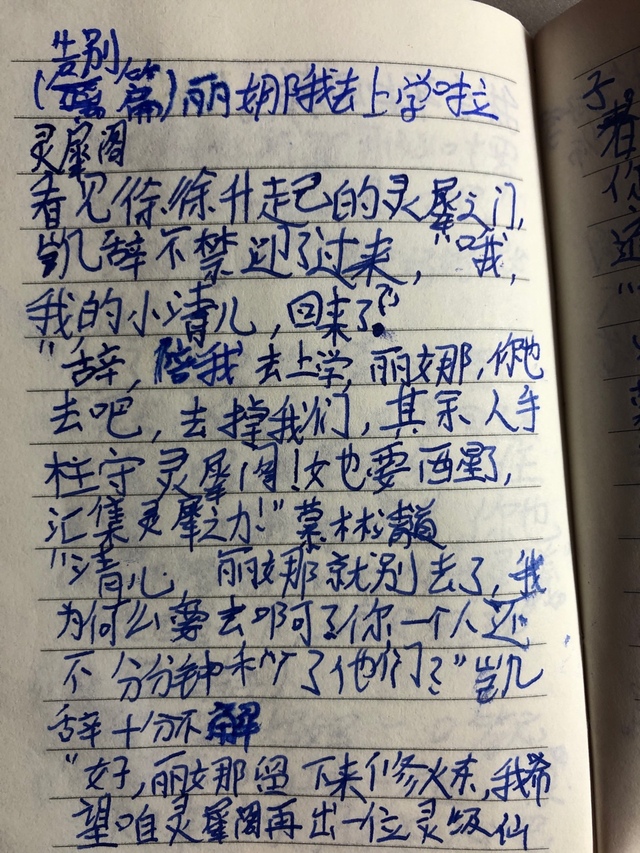 告别
(离篇)丽娜我去上学啦
灵犀阁
看见徐徐升起的灵犀之门,
凯辞不禁迎了过来,“哦,
我的小清儿,回来了?”
“辞,陪我去上学,丽娜,你也
去吧,去掉我们,其余人手
在守灵犀阁!她也要醒了,
汇集灵犀之力!”慕林清道
“清儿,丽娜就别去了,我
为何么要去啊?你一个人还
不分分钟秒了他们?”凯
辞十分不解
“好,丽娜留下来修炼,我希
望咱灵犀阁再出一位灵级仙
子
看
你
还